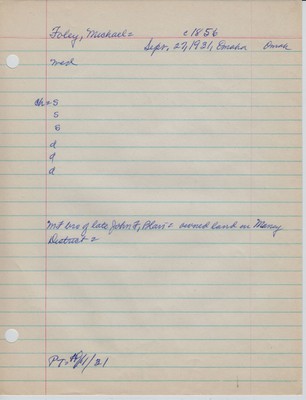 Foley, Michael = c 1856
Sept. 27, 1931, Omaha Omak
med
ch = s
s
s
d
d
d
M F bro of late John F, Blair = owned land in Many
District =
PT = /1/31